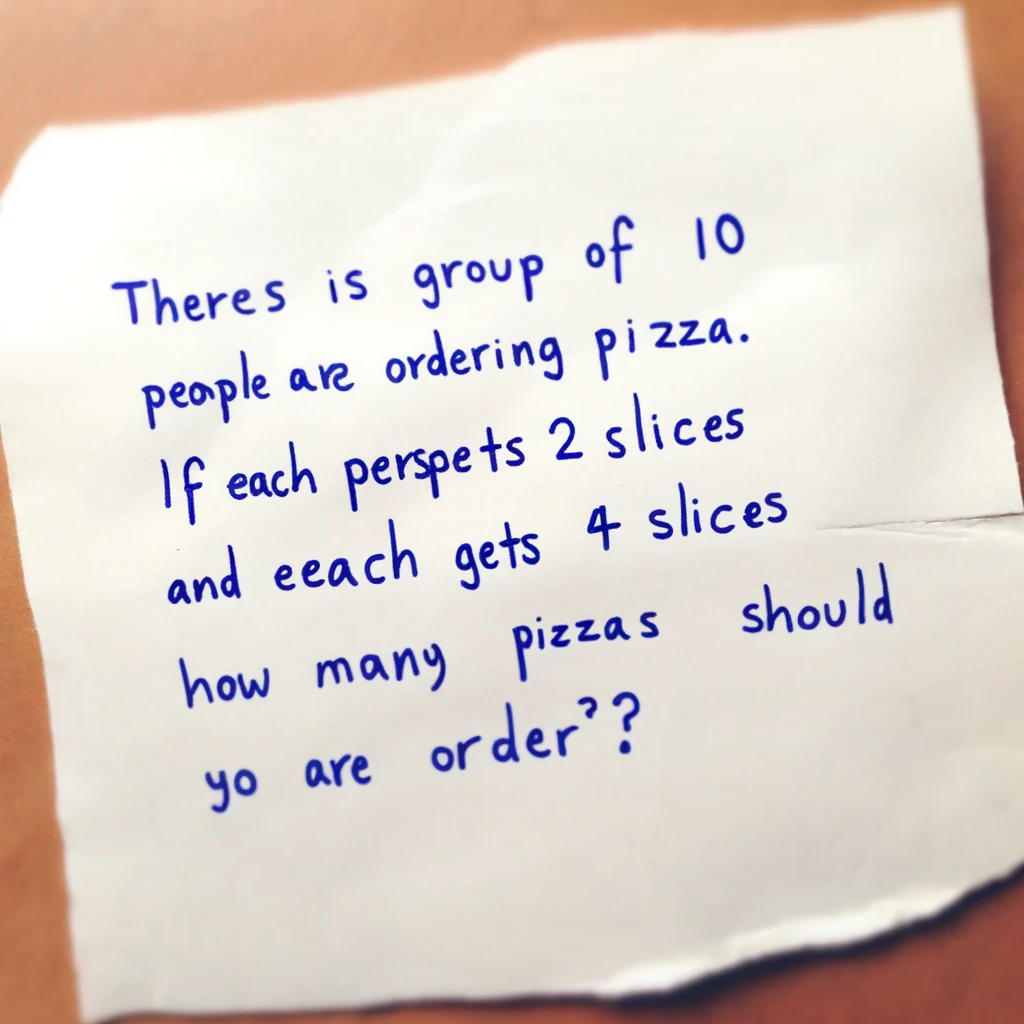 Theres is group of 10
people are ordering pizza.
If each perspets 2 slices
and eeach gets 4 slices
how many pizzas should
yo are order??